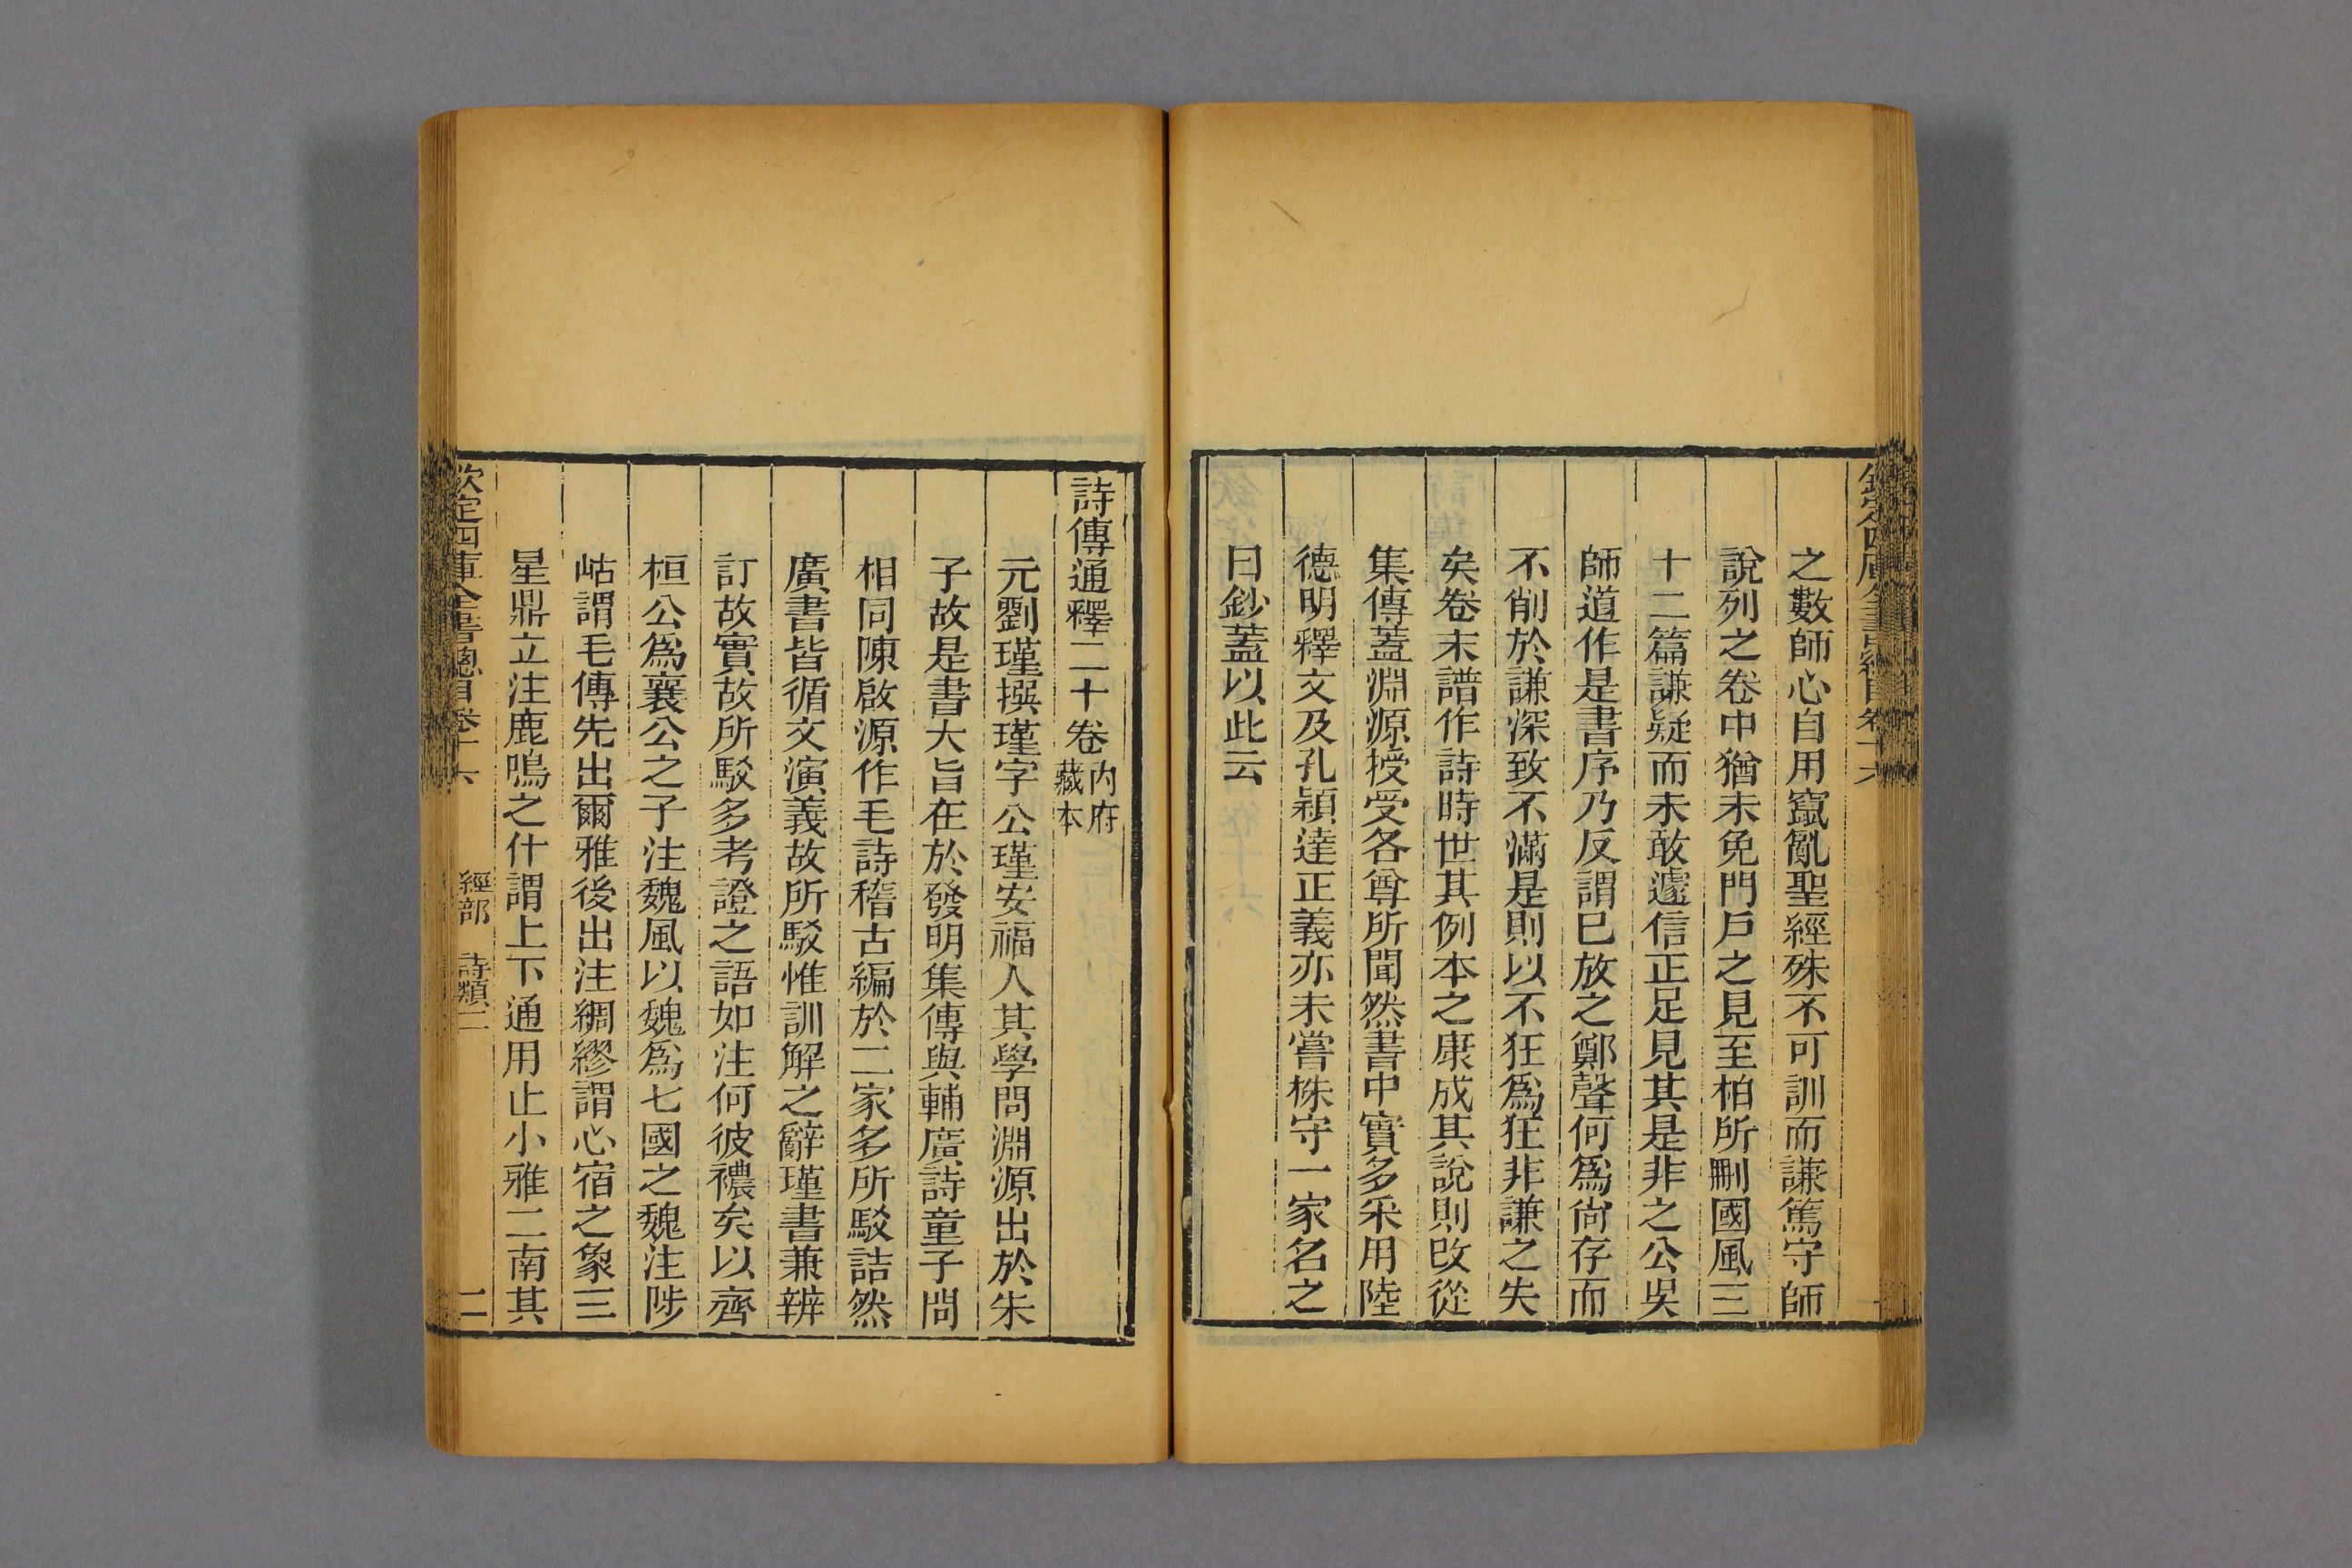 之數師心自用竄亂聖經殊不可訓而謙篤守師
說列之卷中猶未免門戶之見至柏所刪國風三
十二篇謙疑而未敢遽信正足見其是非之公吳
師道作是書序乃反謂巳放之鄭聲何爲尙存而
不削於謙深致不滿是則以不狂爲狂非謙之失
矣卷末譜作詩時世其例本之康成其說則改從
集傳蓋淵源授受各尊所聞然書中實多采用陸
德明釋文及孔穎達正義亦未嘗株守一家名之
曰鈔蓋以此云
詩傳通釋二十卷
內府
藏本
元劉瑾撰瑾字公瑾安福人其學問淵源出於朱
子故是書大旨在於發明集傳與輔廣詩童子問
相同陳啟源作毛詩稽古編於二家多所駁詰然
廣書皆循文演義故所駁惟訓解之辭瑾書兼辨
訂故實故所駁多考證之語如注何彼襛矣以齊
桓公爲襄公之子注魏風以魏爲七國之魏注陟
岵謂毛傳先出爾雅後出注綢繆謂心宿之象三
星鼎立注鹿鳴之什謂上下通用止小雅二南其
欽定四庫全書總目卷十六
經部 詩類二
二